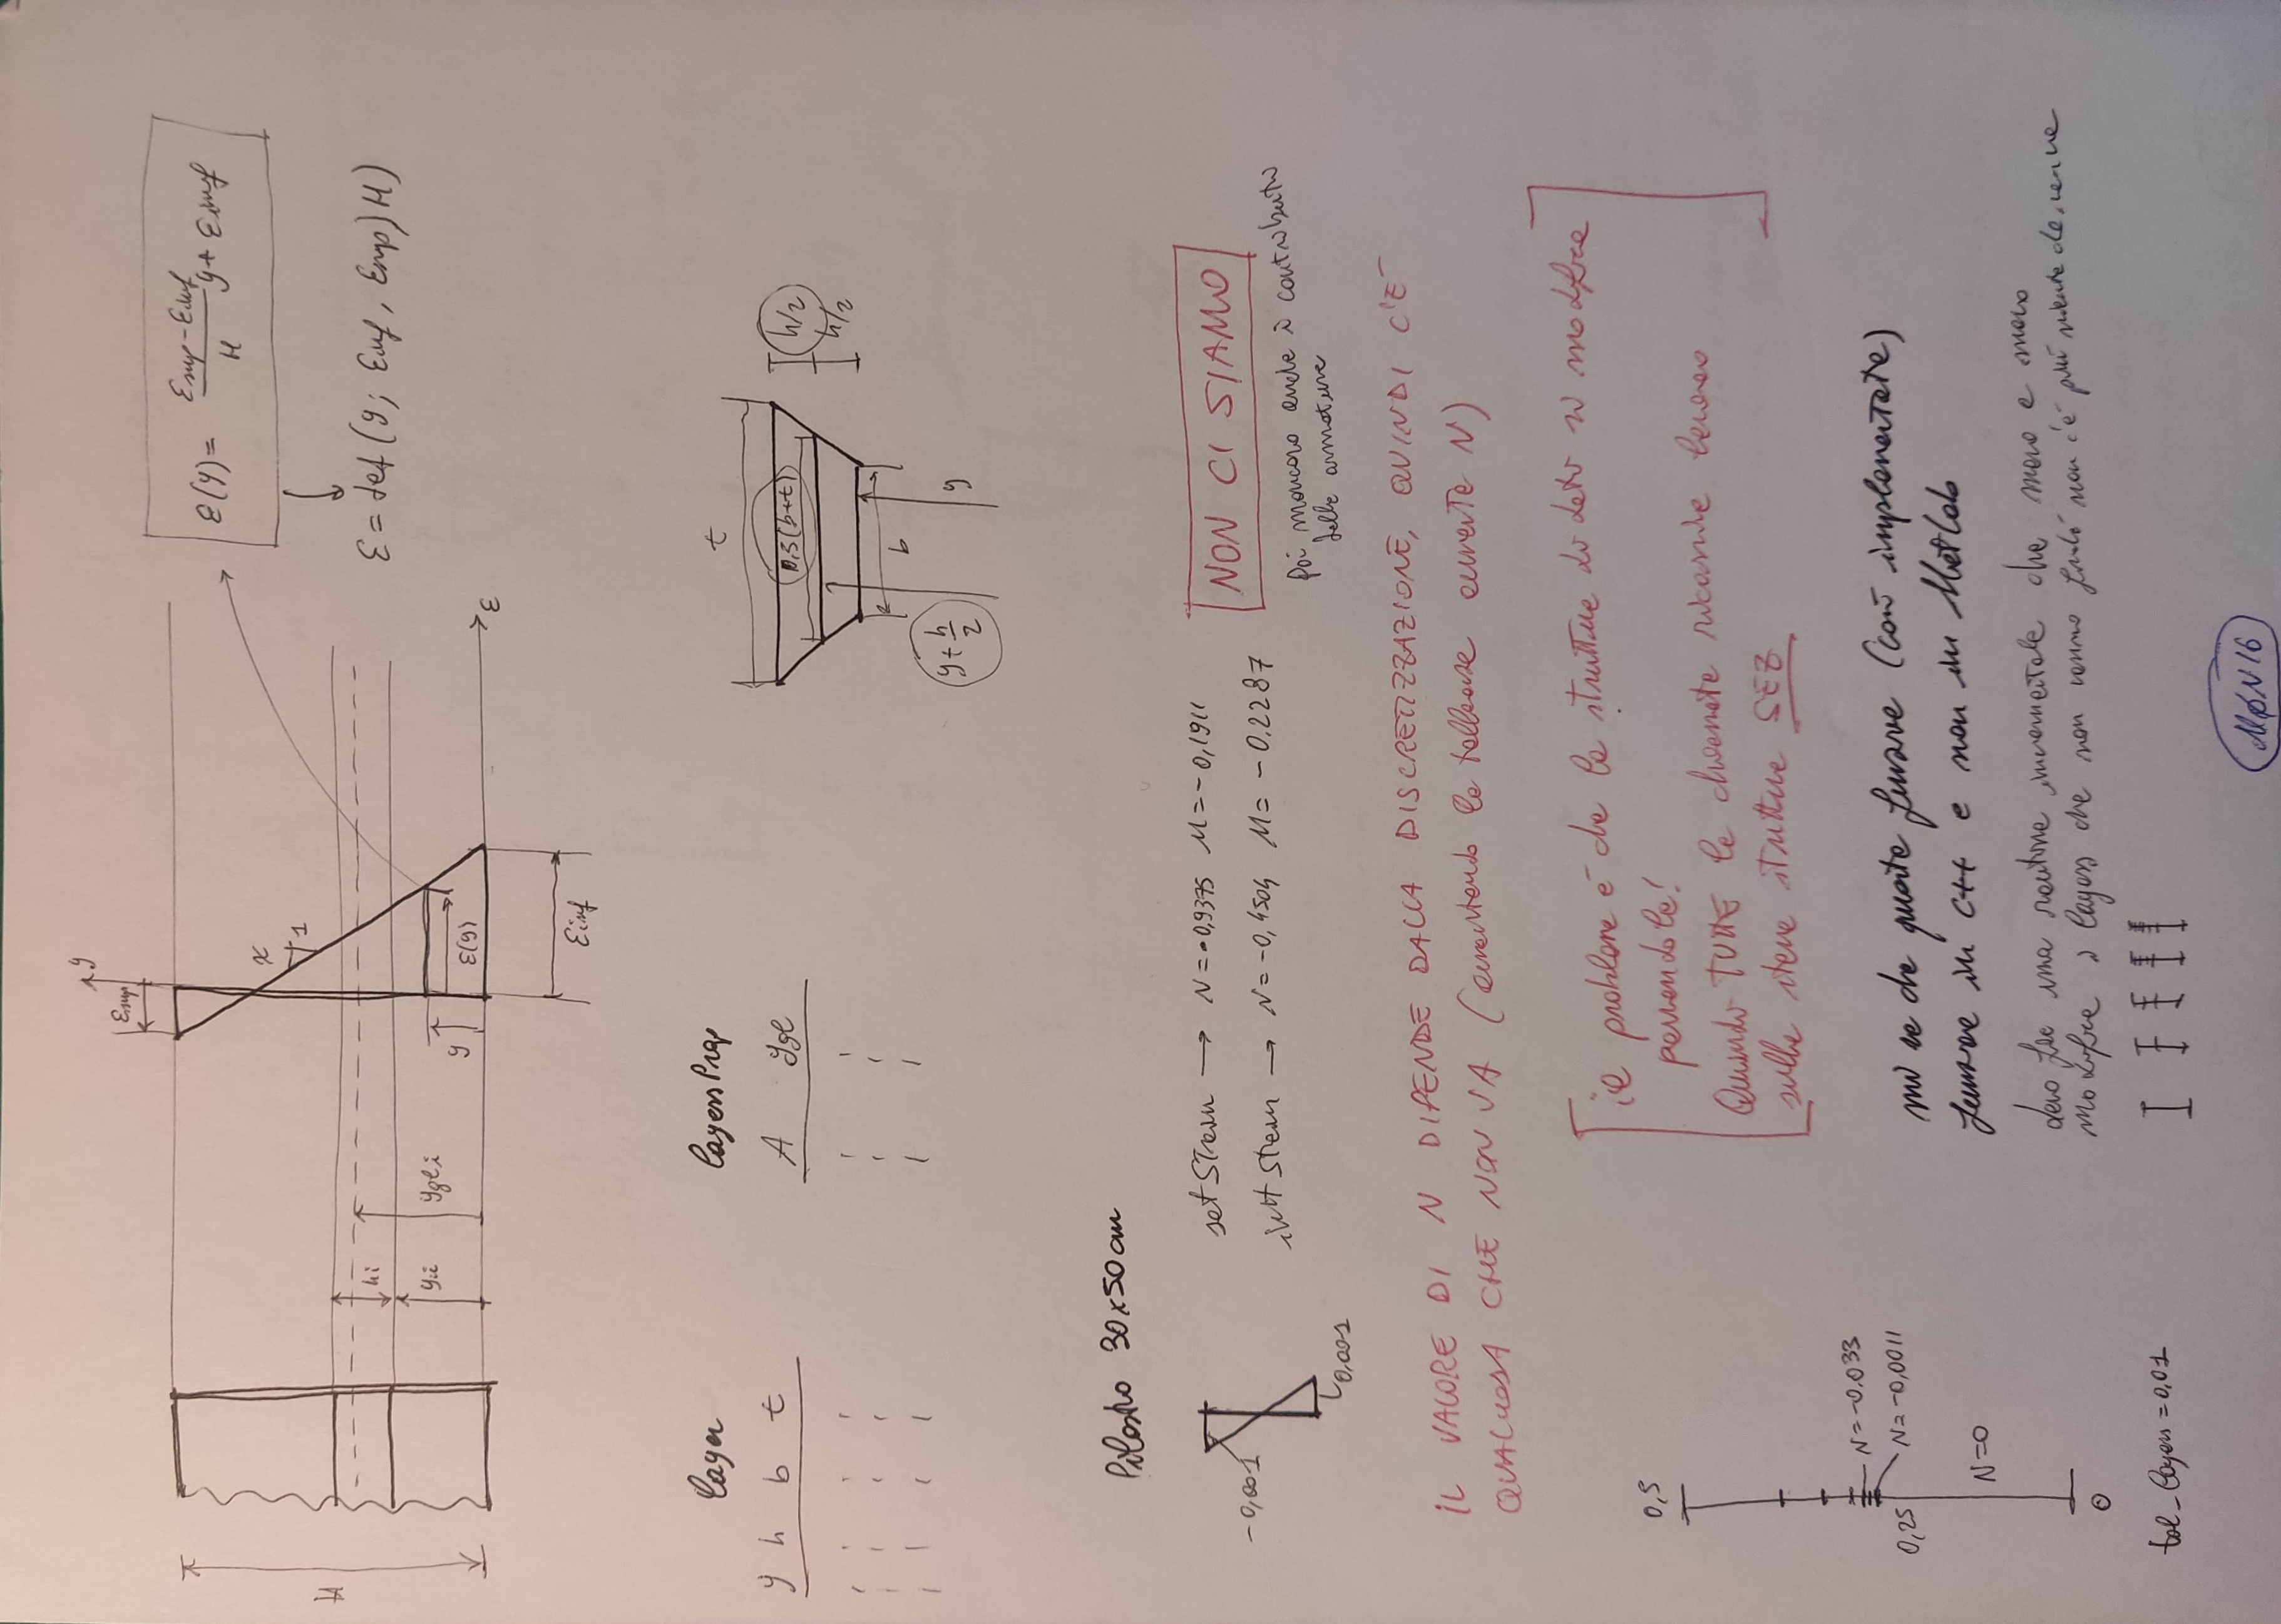 y
εsup
ε(y) = (εsup - εinf)/H y + εinf
χ
1
H
hi
yi
ygli
y
ε(y)
ε
εinf
ε = def (y; εinf, εsup, H)
layer
layersProp
y h b t
A ygl
t
0,5(b+t)
h/2
h/2
b
y + h/2
y
Pilastro 30x50 cm
-0,001
0,001
set Strain → N = -0,9375 M = -0,1911
init Strain → N = -0,4504 M = -0.2287
NON CI SIAMO
poi mancano anche i contributi
delle armature
IL VALORE DI N DIPENDE DALLA DISCRETIZZAZIONE, QUINDI C'È
QUALCOSA CHE NON VA (aumentando la tolleranza aumenta N)
il problema è che la struttura di dati si modifica
passandola!
Quindi TUTTE le chiamate ricorsive lavorano
sulla stessa struttura SEZ
0,5
N = -0.033
N = -0,0011
0,25
N = 0
0
tol_layers = 0,01
mi sa che questa funzione (così implementata)
funziona in C++ e non in Matlab
devo fare una routine incrementale che mano e mano
modifica i layers che non vanno finché non c'è più niente da
MØN16